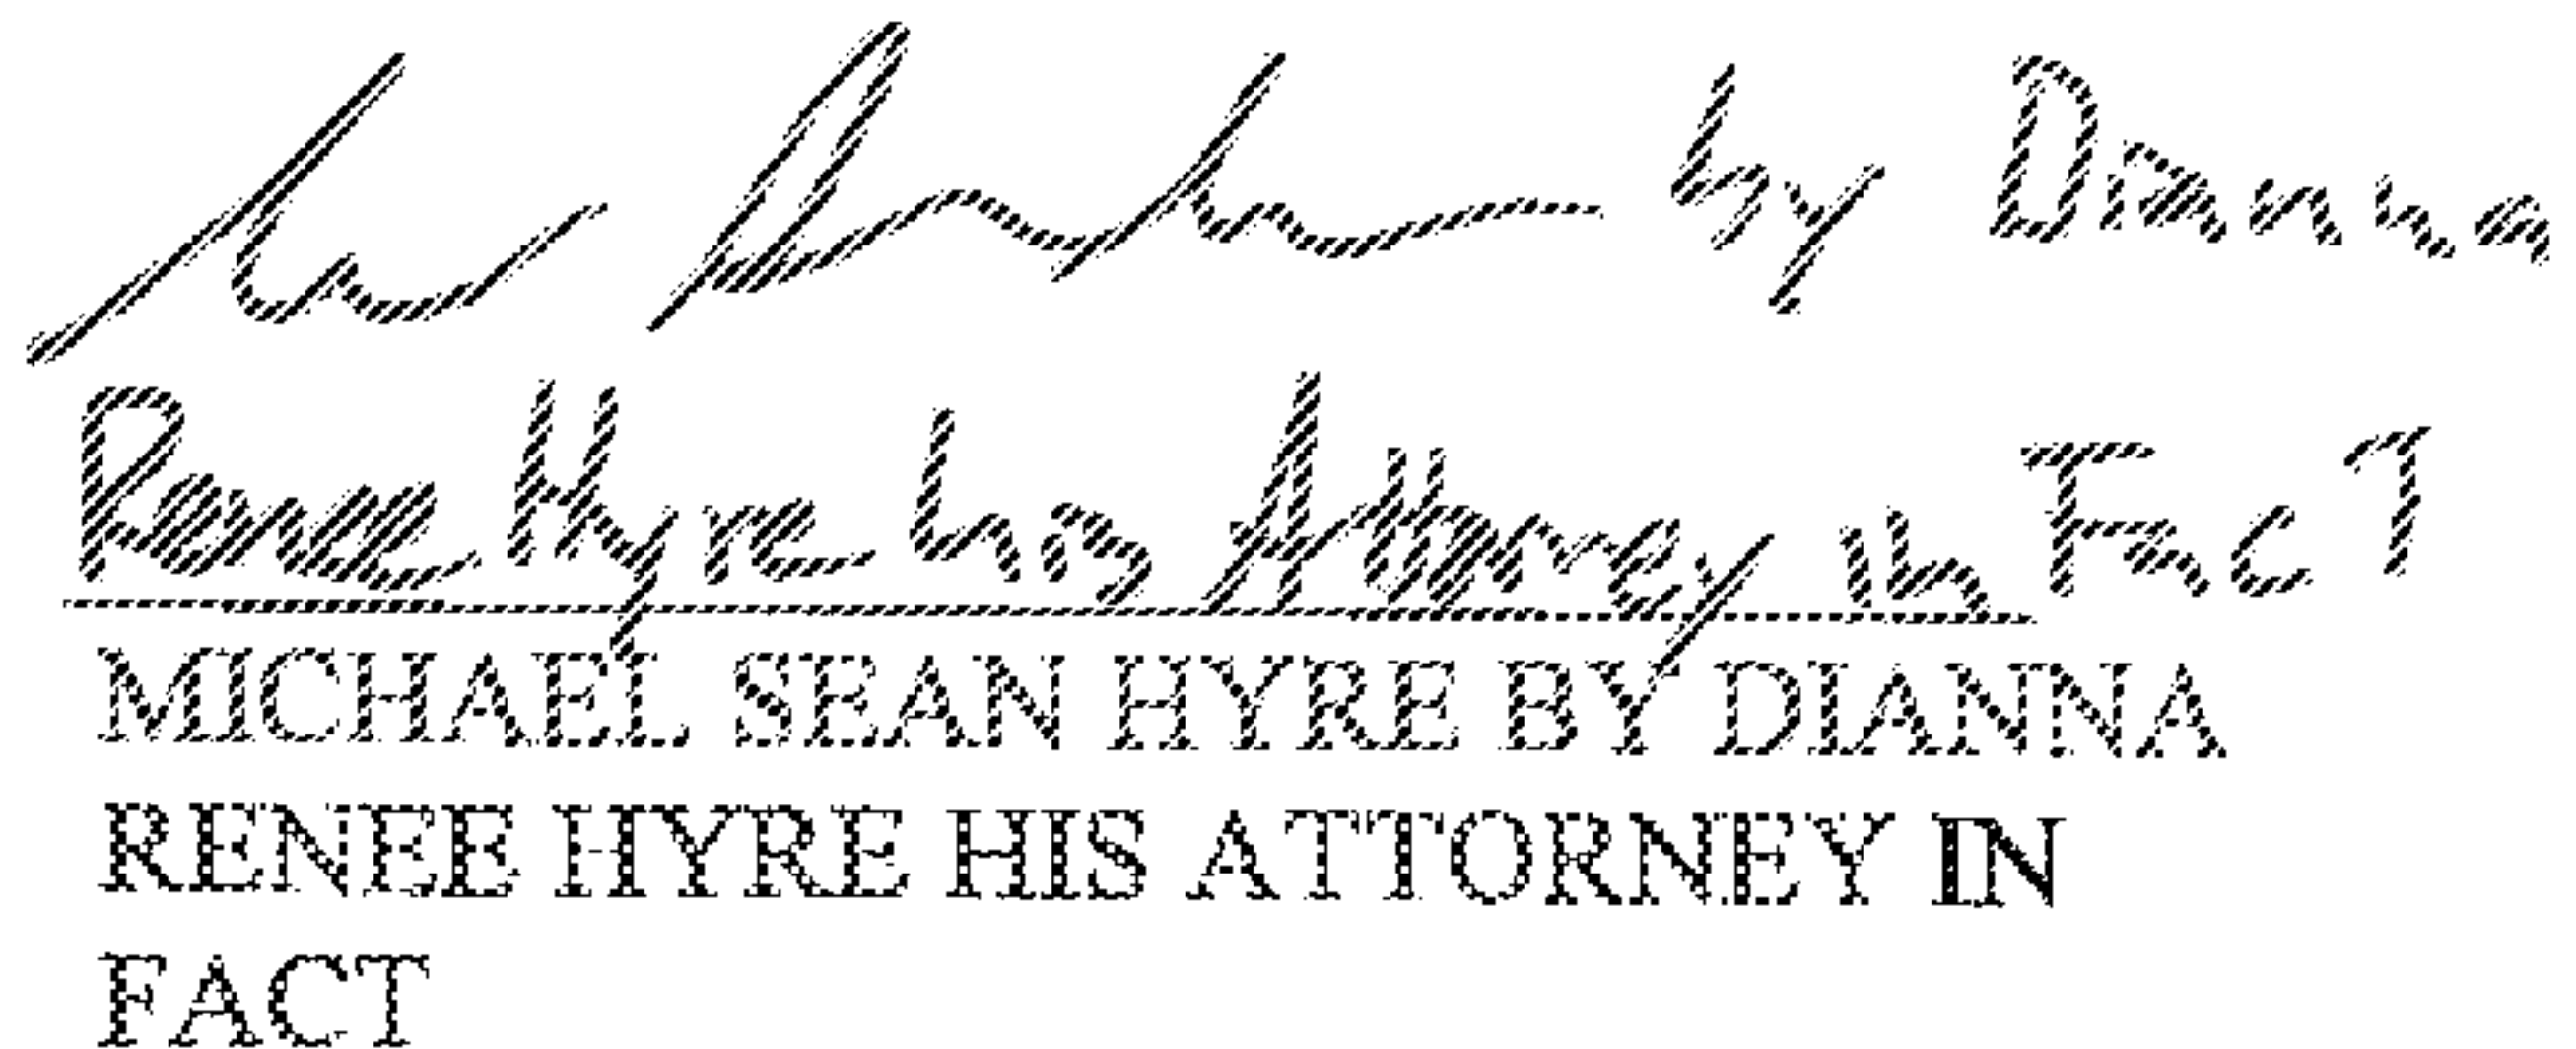 by Dianna
Renee Hyre his Attorney in FacT
MICHAEL SEAN HYRE BY DIANNA
RENEE HYRE HIS ATTORNEY IN
FACT